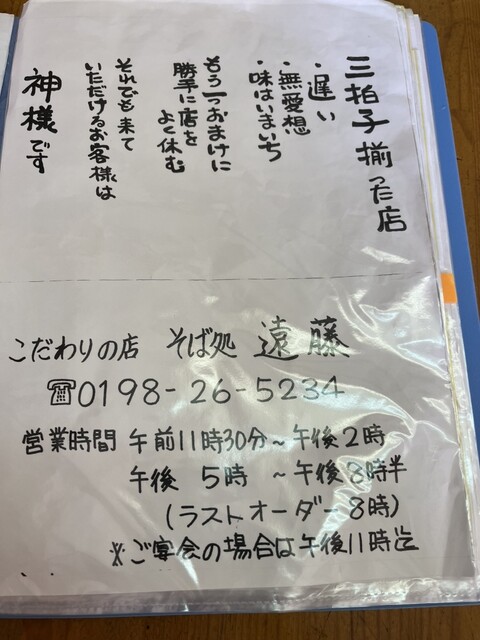 三拍子揃った店
・遅い
・無愛想
・味はいまいち
もう一つおまけに
勝手に店を
よく休む
それでも来て
いただけるお客様は
神様です
こだわりの店 そば処 遠藤
☎0198-26-5234
営業時間 午前11時30分~午後2時
午後 5時 ~午後8時半
(ラストオーダー8時)
※ご宴会の場合は午後11時迄